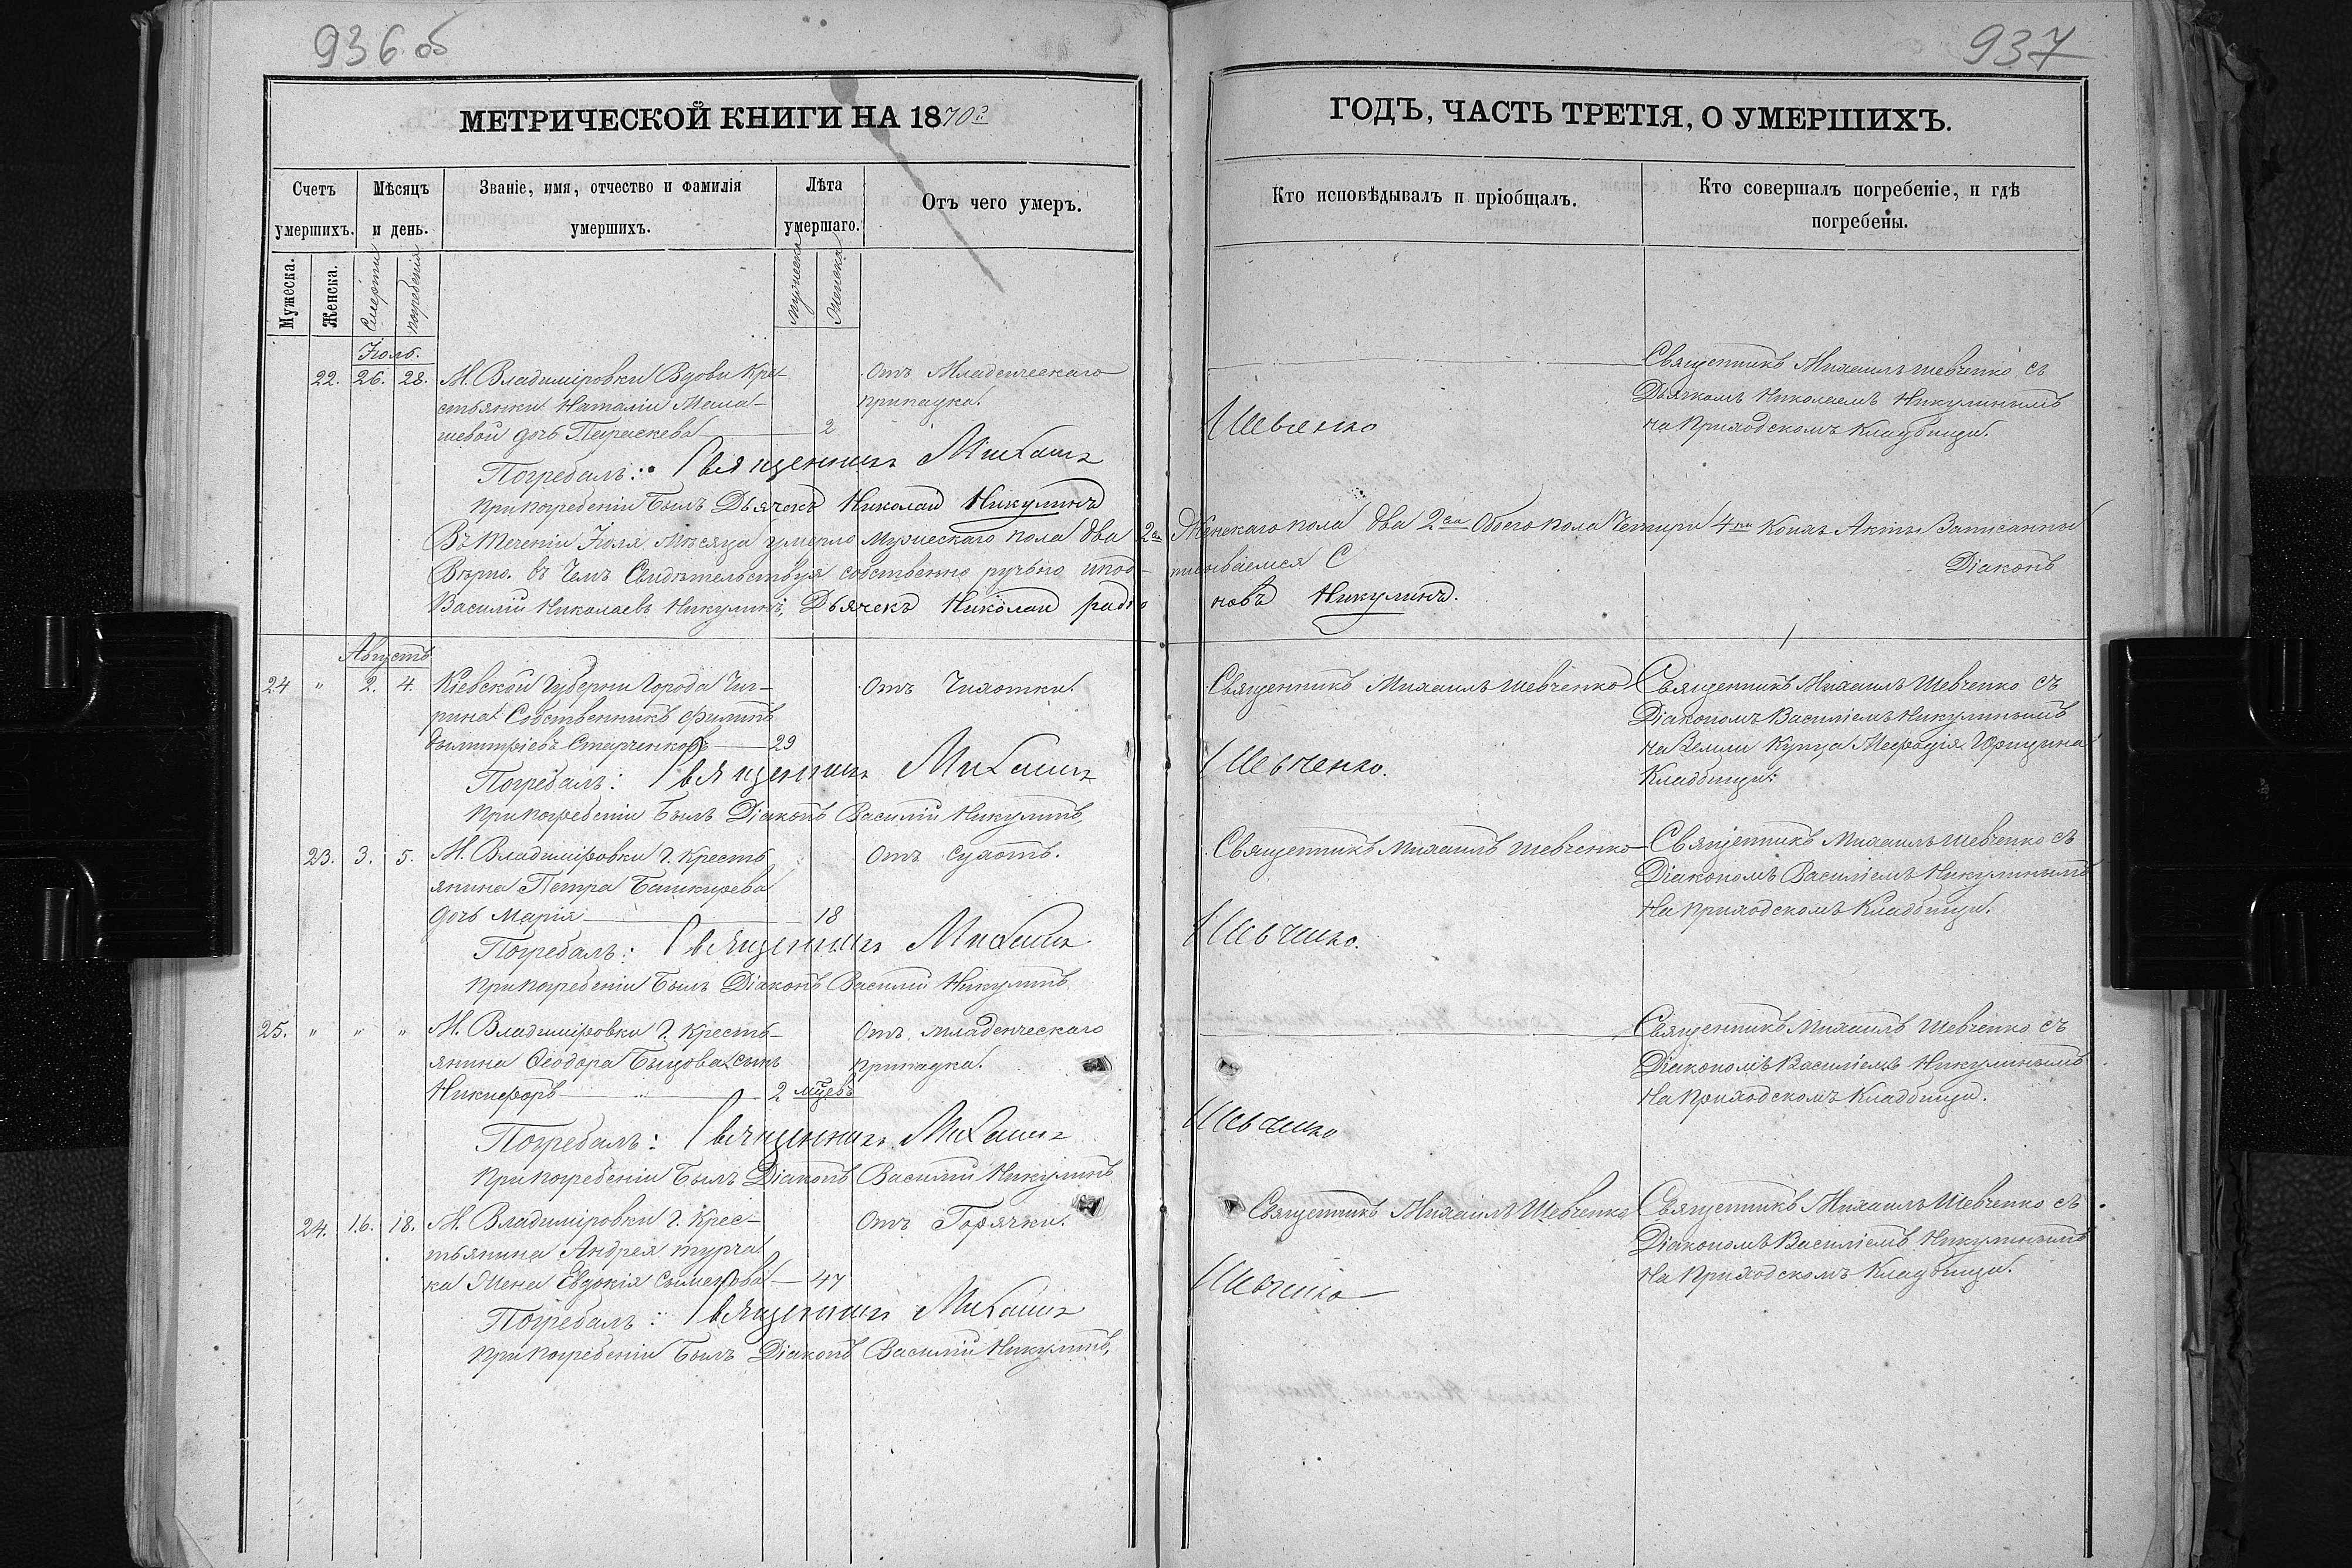 936 об
МЕТРИЧЕСКОЙ КНИГИ НА 1870й
Счетъ умершихъ.
Мѣсяцъ и день.
Званіе, имя, отчество и фамилія умершихъ.
Лѣта умершаго.
Отъ чего умеръ.
Мужеска.
Женска.
Смерти
погребенія
мужеска
женска
Іюль.
22. 26. 28. М. Владиміровки Вдовы Кре- Отъ Младенческаго
стьянки Наталіи Мала- припадка.
шевой дочь Параскева 2
Погребалъ: Священникъ Михаилъ
При погребеніи Былъ Дьячекъ Николай Никулинъ
Въ теченіи Іюля Мѣсяца умерло Мужескаго пола два 2ва
Вѣрно. въ Чемъ Свидѣтельствуя собственно ручьно и под-
Василій Николаевъ Никулинъ, Дьячекъ Николай
Августъ
24 " 2. 4. Кіевской Губерніи Города Чиг- Отъ Чихотки.
рина Собственникъ Филипъ
Дымитріевъ Старченковъ 29
Погребалъ: Священникъ Михаилъ
При погребеніи Былъ Діаконъ Василій Никулинъ,
23. 3. 5. М. Владиміровки Г. Кресть Отъ Сухотъ.
янина Петра Башкирева
дочь Марія 18
Погребалъ: Священникъ Михаилъ
При погребеніи Былъ Діаконъ Василій Никулинъ
25. " " " М. Владиміровки Г. Кресть- Отъ младенческаго
янина Ѳеодора Быцова сынъ припадка.
Никифоръ 2 мцевъ
Погребалъ: Священникъ Михаилъ
При погребеніи Былъ Діаконъ Василій Никулинъ
24. 16. 18. М. Владиміровки Г. Крес- Отъ Горячки.
тьянина Андрея турча
ка Жена Евдокія Сыменова 47
Погребалъ: Священникъ Михаилъ
При погребеніи Былъ Діаконъ Василій Никулинъ,
937
ГОДЪ, ЧАСТЬ ТРЕТІЯ, О УМЕРШИХЪ.
Кто исповѣдывалъ и пріобщалъ.
Кто совершалъ погребеніе, и гдѣ погребены.
Священникъ Михаилъ Шевченко съ
Дьячкомъ Николаемъ Никулинымъ
Шевченко на Приходскомъ Кладбищи.
Женскаго пола два 2ва Обоего пола Четыри 4ри Коихъ Акты Записанны
Діаконъ
новъ Никулинъ.
Священникъ Михаилъ Шевченко Священникъ Михаилъ Шевченко съ
Діакономъ Василіемъ Никулинымъ
на Земли Купца Мефодія
Шевченко. Кладбищи.
Священникъ Михаилъ Шевченко Священникъ Михаилъ Шевченко съ
Діакономъ Василіемъ Никулинымъ
Шевченко. На Приходскомъ Кладбищи.
Священникъ Михаилъ Шевченко съ
Діакономъ Василіемъ Никулинымъ
Шевченко На Приходскомъ Кладбищи.
Священникъ Михаилъ Шевченко Священникъ Михаилъ Шевченко съ
Діакономъ Василіемъ Никулинымъ
Шевченко На Приходскомъ Кладбищи.